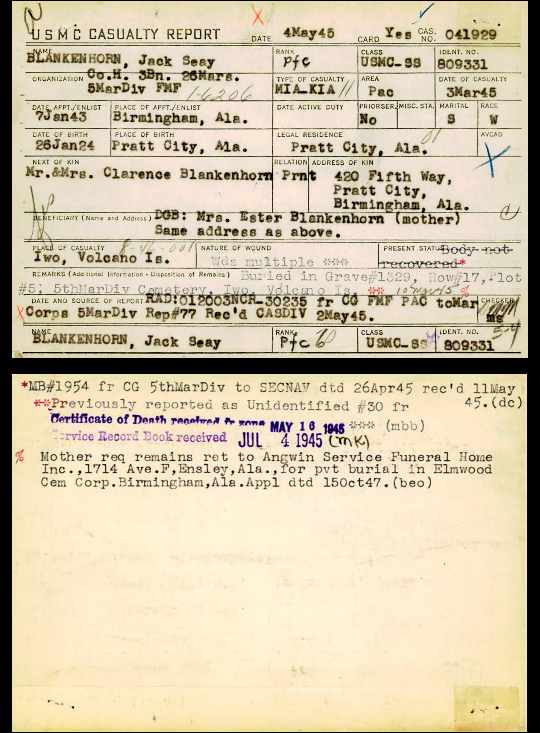 USMC CASUALTY REPORT DATE 4May45 CARD Yes CAS. NO. 041929
NAME RANK CLASS IDENT. NO.
BLANKENHORN, Jack Seay Pfc USMC-SS 809331
ORGANIZATION Co.H. 3Bn. 26Mars. TYPE OF CASUALTY AREA DATE OF CASUALTY
5MarDiv FMF 1-6206 MIA-KIA 11 Pac 3Mar45
DATE APPT./ENLIST PLACE OF APPT./ENLIST DATE ACTIVE DUTY PRIORSER. MISC. STA. MARITAL RACE
7Jan43 Birmingham, Ala. No S W
DATE OF BIRTH PLACE OF BIRTH LEGAL RESIDENCE 01 AVCAD
26Jan24 Pratt City, Ala. Pratt City, Ala.
NEXT OF KIN RELATION ADDRESS OF KIN
Mr.&Mrs. Clarence Blankenhorn Prnt 420 Fifth Way,
Pratt City,
Birmingham, Ala.
BENEFICIARY (Name and Address) DGB: Mrs. Ester Blankenhorn (mother)
Same address as above.
PLACE OF CASUALTY NATURE OF WOUND PRESENT STATUS Body not
Iwo, Volcano Is. Wds multiple *** recovered*
REMARKS (Additional Information - Disposition of Remains) Buried in Grave#1329, Row#17,Plot
#5; 5thMarDiv Cemetery, Iwo, Volcano Is. ** 10May45 %
DATE AND SOURCE OF REPORT RAD:012003NCR_30235 fr CG FMF PAC toMar CHECKER
Corps 5MarDiv Rep#77 Rec'd CASDIV 2May45. mg
NAME RANK CLASS IDENT. NO.
BLANKENHORN, Jack Seay Pfc USMC-SS 809331
*MB#1954 fr CG 5thMarDiv to SECNAV dtd 26Apr45 rec'd 11May
**Previously reported as Unidentified #30 fr 45.(dc)
Certificate of Death received MAY 16 1945 *** (mbb)
Service Record Book received JUL 4 1945 (MK)
% Mother req remains ret to Angwin Service Funeral Home
Inc.,1714 Ave.F,Ensley,Ala.,for pvt burial in Elmwood
Cem Corp.Birmingham,Ala.Appl dtd 15Oct47.(beo)